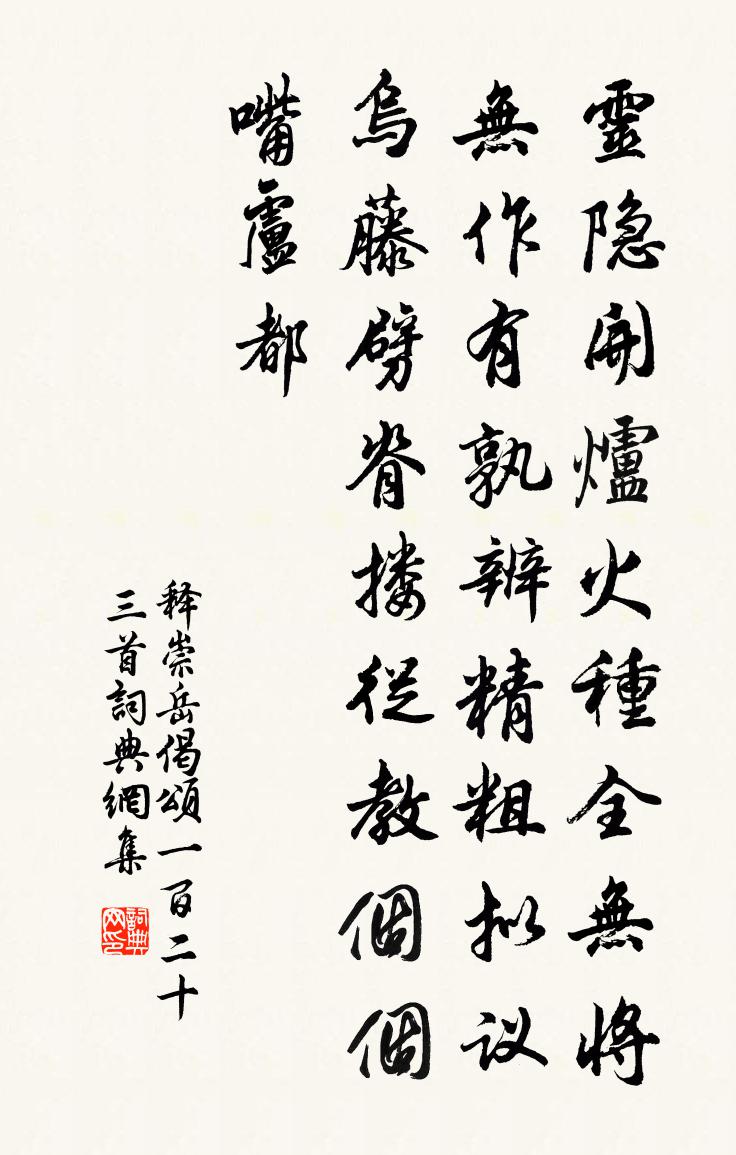 靈隐開爐火種全無將
無作有孰辨精粗拟议
烏藤劈脊搂從教個個
嘴盧都
释崇岳偈頌一百二十
三首詞典網集
詞典网印